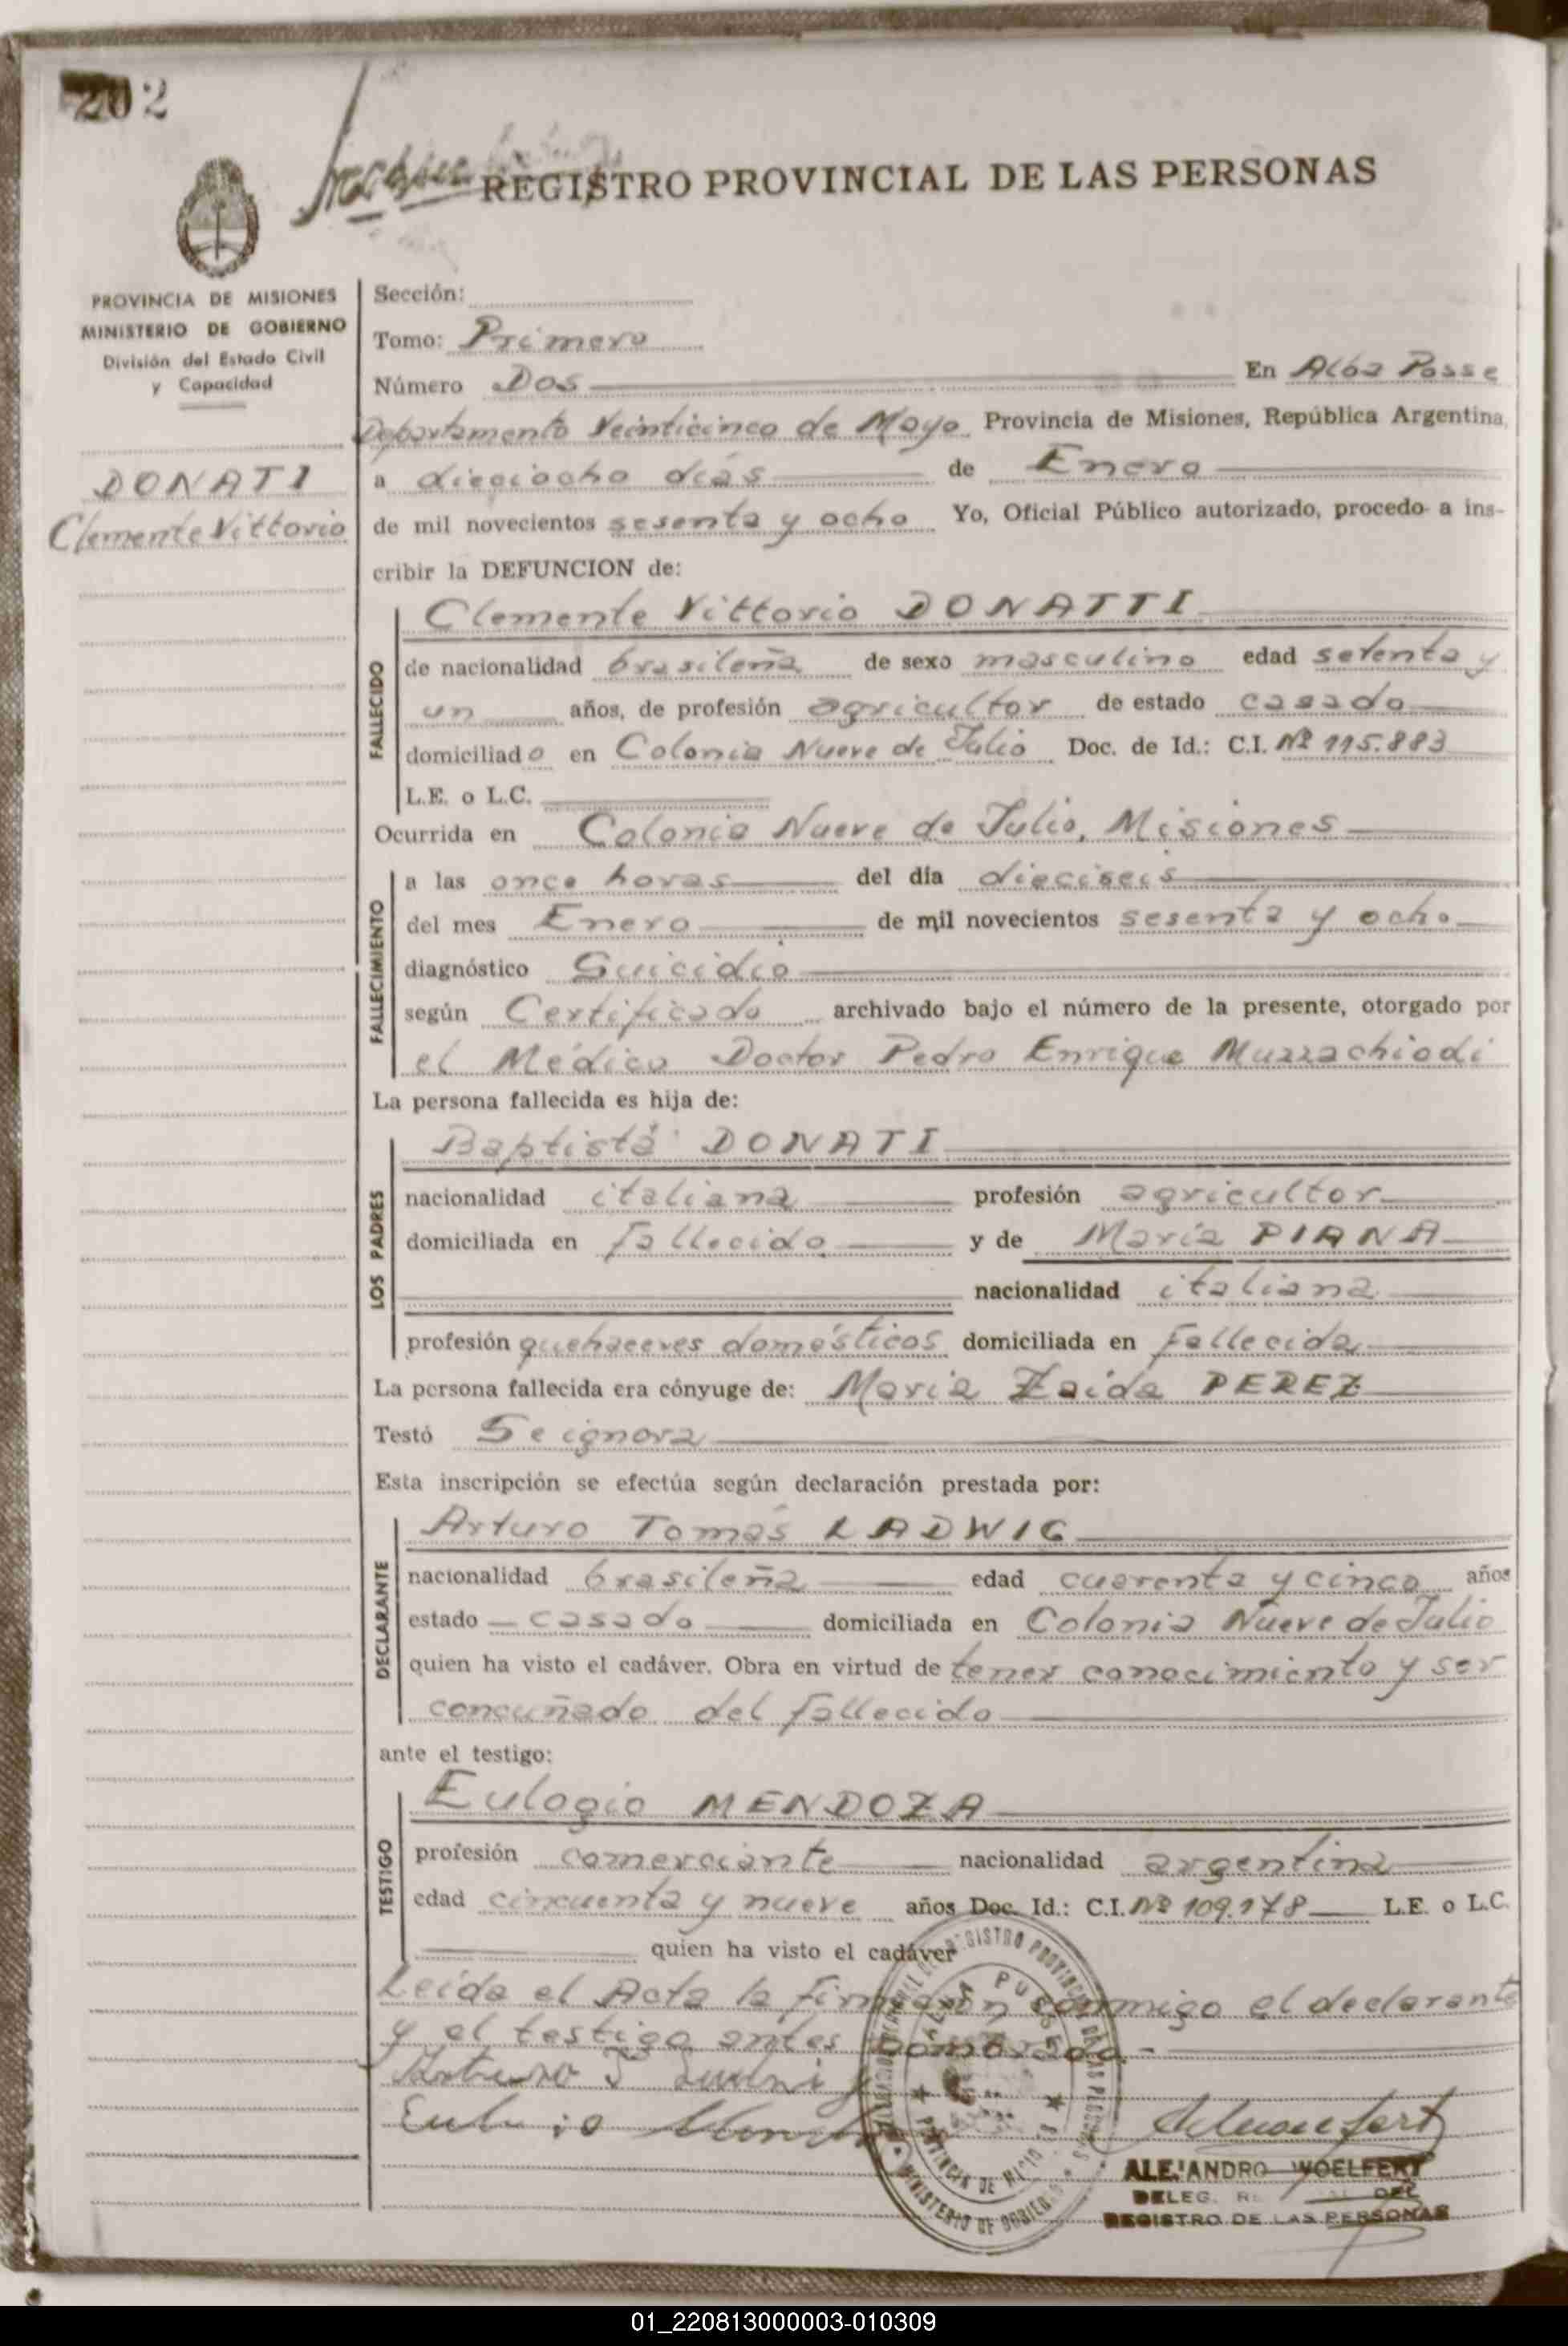 202
REGISTRO PROVINCIAL DE LAS PERSONAS
PROVINCIA DE MISIONES
MINISTERIO DE GOBIERNO
División del Estado Civil
y Capacidad
DONATI
Clemente Vittorio
Sección:
Tomo: Primero
Número Dos En Alba Posse
Departamento Veinticinco de Mayo Provincia de Misiones, República Argentina,
a dieciocho días de Enero
de mil novecientos sesenta y ocho Yo, Oficial Público autorizado, procedo a ins-
cribir la DEFUNCION de:
FALLECIDO
Clemente Vittorio DONATTI
de nacionalidad brasileña de sexo masculino edad setenta y
un años, de profesión agricultor de estado casado
domiciliado en Colonia Nueve de Julio Doc. de Id.: C.I. Nº 115.883
L.E. o L.C.
Ocurrida en Colonia Nueve de Julio, Misiones
FALLECIMIENTO
a las once horas del día dieciseis
del mes Enero de mil novecientos sesenta y ocho
diagnóstico Suicidio
según Certificado archivado bajo el número de la presente, otorgado por
el Médico Doctor Pedro Enrique Muzzachiodi
La persona fallecida es hija de:
LOS PADRES
Baptista DONATI
nacionalidad italiana profesión agricultor
domiciliada en fallecido y de María PIANA
nacionalidad italiana
profesión quehaceres domésticos domiciliada en fallecida
La persona fallecida era cónyuge de: María Zaida PEREZ
Testó Se ignora
Esta inscripción se efectúa según declaración prestada por:
DECLARANTE
Arturo Tomás LADWIG
nacionalidad brasileña edad cuarenta y cinco años
estado casado domiciliada en Colonia Nueve de Julio
quien ha visto el cadáver. Obra en virtud de tener conocimiento y ser
concuñado del fallecido
ante el testigo:
TESTIGO
Eulogio MENDOZA
profesión comerciante nacionalidad argentina
edad cincuenta y nueve años Doc. Id.: C.I. Nº 109.178 L.E. o L.C.
quien ha visto el cadáver
Leída el Acta la firmarón conmigo el declarante
y el testigo antes nombrado.-
Arturo T
ALEJANDRO WOELFERT
DELEG. DEL
REGISTRO DE LAS PERSONAS
01_220813000003-010309